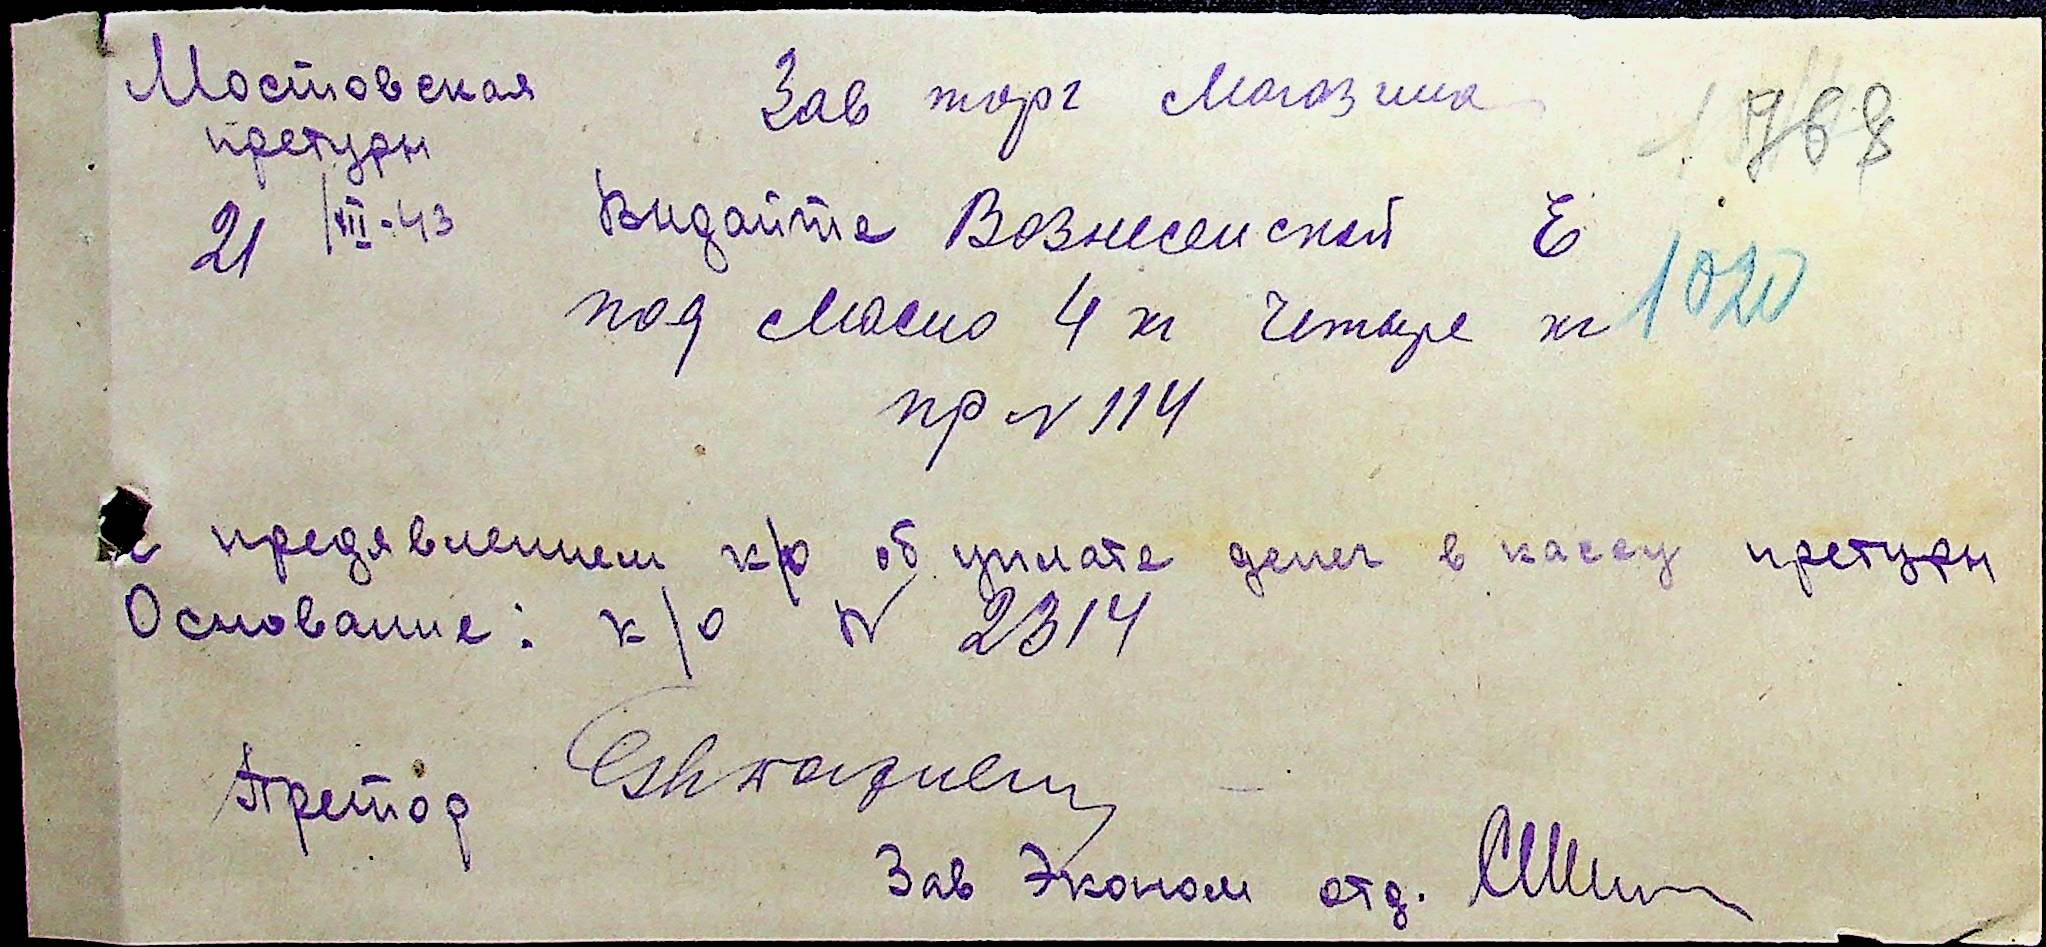 Мостовская
претуры
21/VIII-43
Зав торг Магазина
768
Выдайте Вознесенской Е
под Масло 4 кг Четыре кг
1020
пр № 114
с предявлением к/о об уплате денег в кассу претуры
Основание: к/о № 2314
Претор
Зав Эконом отд.